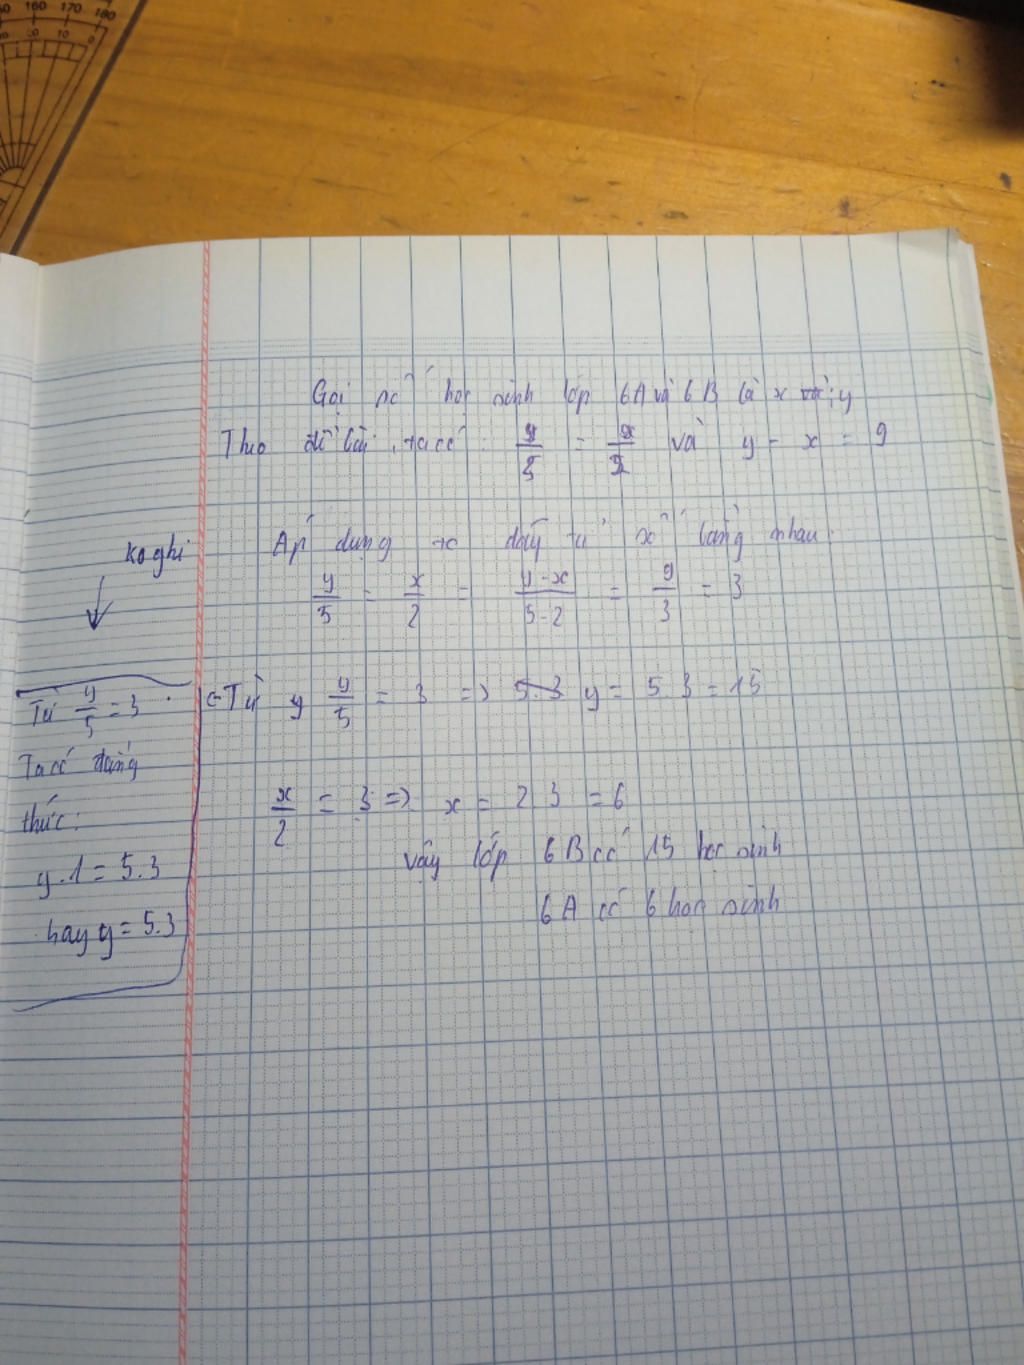 160 170 180
10 0
Gọi số học sinh lớp 6A và 6B là x và; y
Theo đề bài, ta có: y/5 = x/2 và y - x = 9
Áp dụng tc dãy tỉ số bằng nhau:
y/5 = x/2 = y-x/5-2 = 9/3 = 3
Từ y y/5 = 3 => 5.3 y = 5 3 = 15
x/2 = 3 => x = 2 3 = 6
vậy lớp 6B có 15 học sinh
6A có 6 học sinh
ko ghi
Từ y/5 = 3
Ta có đẳng
thức:
y.1 = 5.3
hay y = 5.3